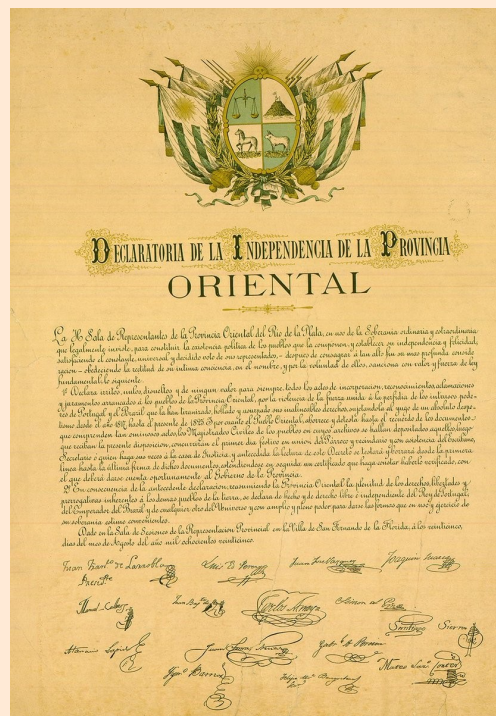 DECLARATORIA DE LA INDEPENDENCIA DE LA PROVINCIA
ORIENTAL
La H. Sala de Representantes de la Provincia Oriental del Rio de la Plata, en uso de la Soberania ordinaria y extraordinaria
que legalmente inviste, para constituir la existencia politica de los pueblos que la componen, y establecer su independencia y felicidad,
satisfaciendo el constante, universal y decidido voto de sus representados, – despues de consagrar á tan alto fin su mas profunda conside
racion – obedeciendo la rectitud de su intima conciencia, en el nombre, y por la voluntad de ellos, sanciona con valor y fuerza de ley
fundamental, lo siguiente
1º Declara irritos, nulos, disueltos y de ningun valor para siempre, todos los actos de incorporacion, reconocimientos, aclamaciones
y juramentos arrancados á los pueblos de la Provincia Oriental, por la violencia de la fuerza unida á la perfidia de los intrusos pode-
res de Portugal y el Brasil que la han tiranizado, hollado y usurpado sus inalienables derechos, sujetandola al yugo de un absoluto despo-
tismo desde el año 1817, hasta el presente de 1825. I por cuanto el Pueblo Oriental, aborrece y detesta hasta el recuerdo de los documentos
que comprenden tan ominosos actos, los Magistrados Civiles de los pueblos en cuyos archivos se hallan depositados aquellos, luego
que reciban la presente disposicion, concurrirán el primer dia festivo en union del Párroco y vecindario y con asistencia del Escribano,
Secretario ó quien haga sus veces á la casa de Justicia, y antecedida la lectura de este Decreto se testará y borrará desde la primera
linea hasta la última firma de dichos documentos, estendiéndose en seguida un certificado que haga constar haberlo verificado, con
el que deberá darse cuenta oportunamente al Gobierno de la Provincia.
2º En consecuencia de la antecedente declaracion, reasumiendo la Provincia Oriental la plenitud de los derechos, libertades y
prerrogativas inherentes á los demas pueblos de la tierra, se declara de hecho y de derecho libre é independiente del Rey de Portugal,
del Emperador del Brasil, y de cualquiera otro del Universo y con amplio y pleno poder para darse las formas que en uso y ejercicio de
su soberania estime convenientes.
Dado en la Sala de Sesiones de la Representacion Provincial en la Villa de San Fernando de la Florida, á los veinticinco
dias del mes de Agosto del año mil ochocientos veinticinco.
Juan Franco de Larrobla
Presdte
Luis E. Perez
Juan José Vazquez
Joaquin Suarez
Manuel Calleros
Carlos Anaya
Simon del Pino
Santiago Sierra
Atanasio Lapido
Gabl A. Pereira
Mateo Lázo Cortés
Igno Barrios